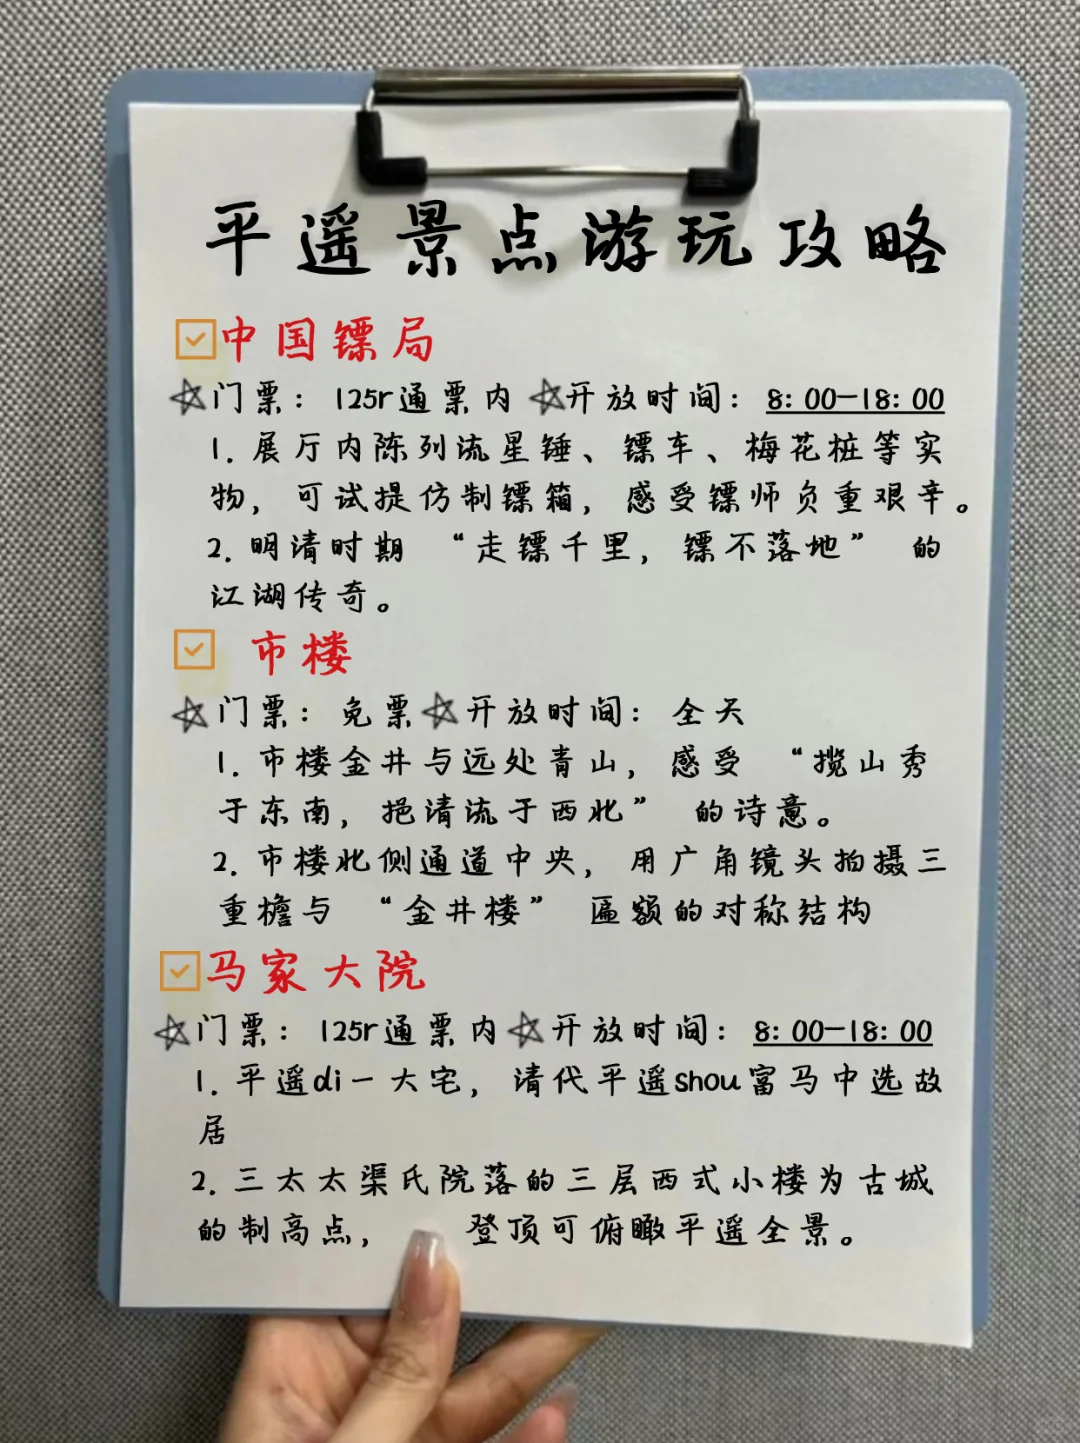 平遥景点游玩攻略
中国镖局
门票：125r通票内 开放时间：8：00-18：00
1. 展厅内陈列流星锤、镖车、梅花桩等实
物，可试提仿制镖箱，感受镖师负重艰辛。
2. 明清时期“走镖千里，镖不落地”的
江湖传奇。
市楼
门票：免票 开放时间：全天
1. 市楼金井与远处青山，感受“揽山秀
于东南，挹清流于西北”的诗意。
2. 市楼北侧通道中央，用广角镜头拍摄三
重檐与“金井楼”匾额的对称结构
马家大院
门票：125r通票内 开放时间：8：00-18：00
1. 平遥di一大宅，清代平遥shou富马中选故
居
2. 三太太渠氏院落的三层西式小楼为古城
的制高点，登顶可俯瞰平遥全景。